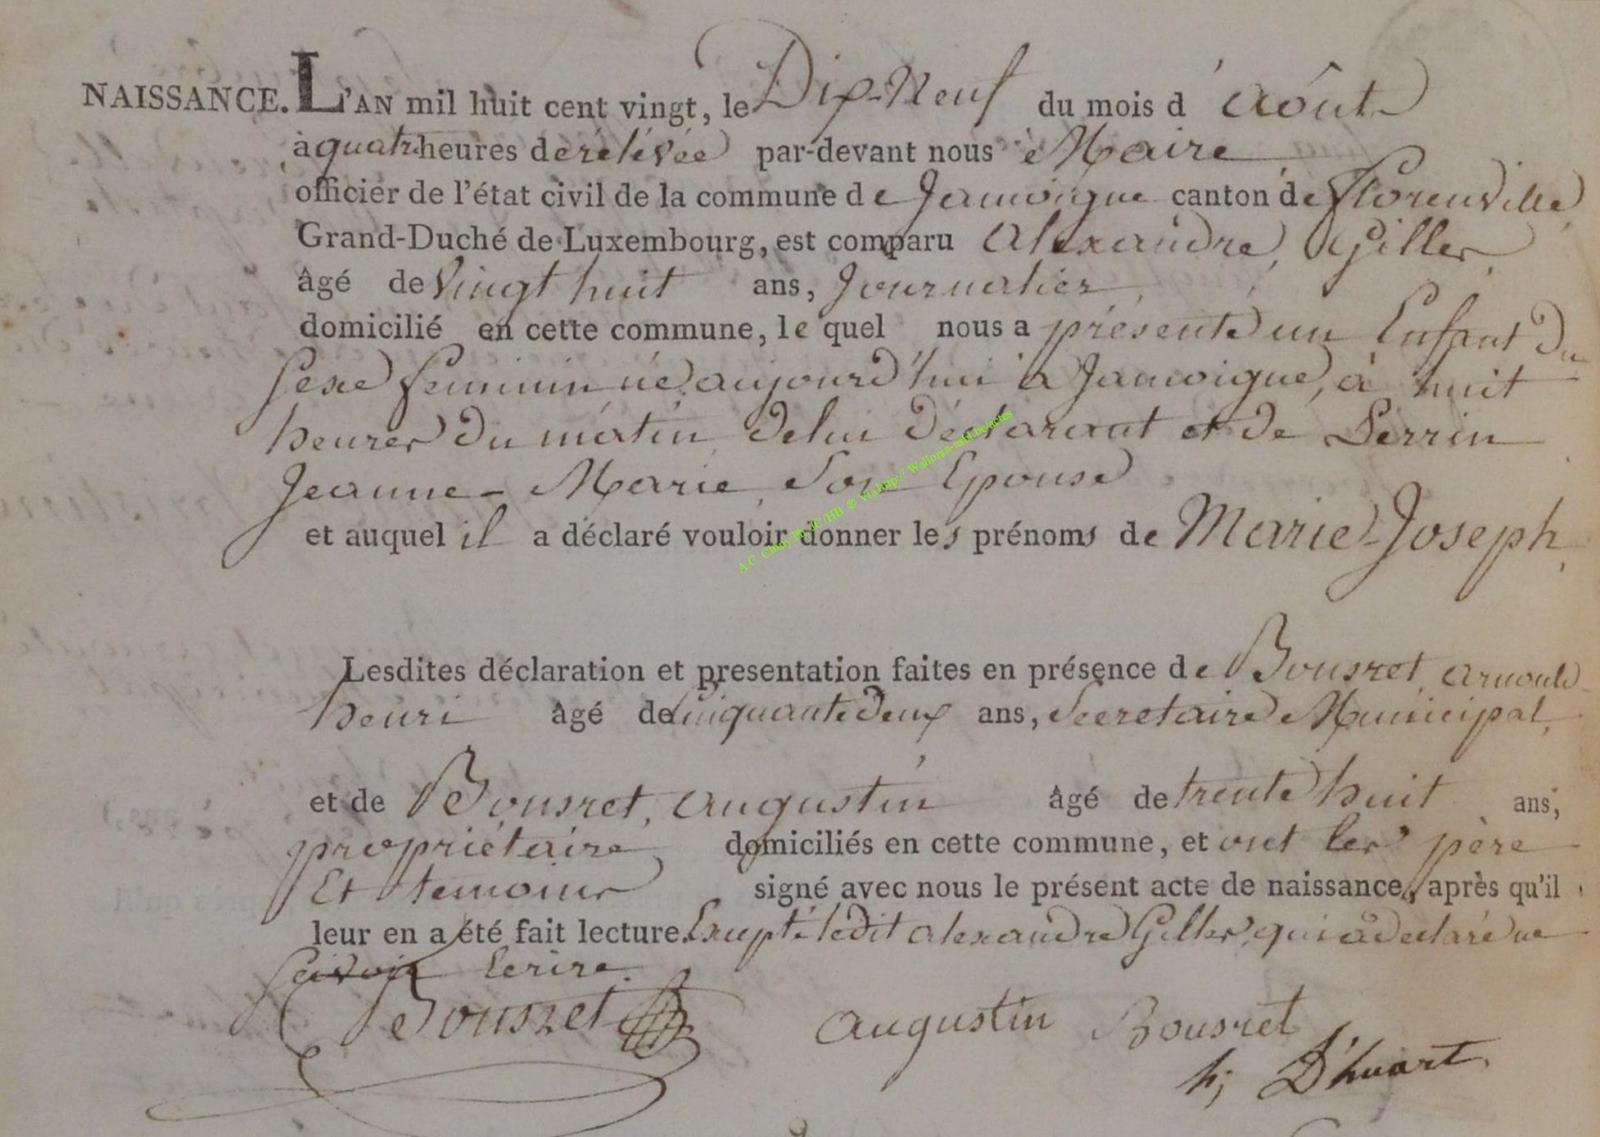 NAISSANCE. L'AN mil huit cent vingt, le Dix-Neuf du mois d'Aôut
à quatr heures de rélévée par-devant nous Maire
officier de l'état civil de la commune de Jamoigne canton de Florenville
Grand-Duché de Luxembourg, est comparu Alexandre Gilles
âgé de Vingt huit ans, Journalier
domicilié en cette commune, le quel nous a présenté un Enfant du
Sexe feminin né aujourd'hui à Jamoigne, à huit
heures du matin de lui déclarant et de Perrin
Jeanne-Marie Son Epouse
et auquel il a déclaré vouloir donner les prénoms de Marie-Joseph
Lesdites déclaration et presentation faites en présence de Bousret, arnould
henri âgé de Cinquante deux ans, Secretaire Municipal,
et de Bousret, augustin âgé de trente huit ans,
propriétaire, domiciliés en cette commune, et ont les père
Et temoins signé avec nous le présent acte de naissance, après qu'il
leur en a été fait lecture. Excepté ledit alexandre Gilles, qui a declaré ne
Scavoir Ecrire.
Bousret
augustin Bousret
h; D'huart